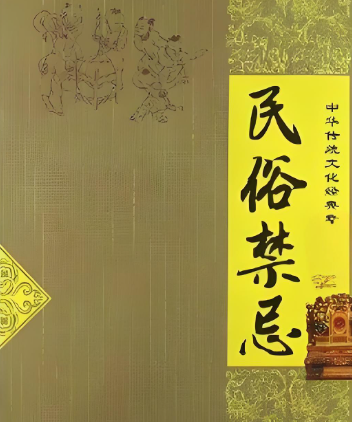 中华传统文化经典荟
民俗禁忌